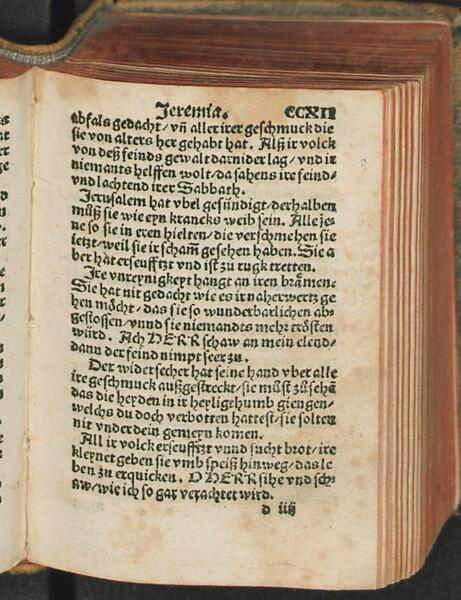 Jeremia. CCXII
abfals gedacht/ vñ aller irer geschmuck die
sie von alters her gehabt hat. Alß ir volck
von deß feinds gewalt darnider lag/ vnd ir
niemants helffen wolt/ da sahens ire feind/
vnd lachtend irer Sabbath.
Jerusalem hat vbel gesündigt/ derhalben
müß sie wie eyn krancks weib sein. Alle je
ne so sie in eren hielten/ die verschmehen sie
ietzt/ weil sie ir scham gesehen haben. Sie a
ber hat erseufftzt vnd ist zu rugk tretten.
Ire vnreynigkeyt hangt an iren brämen.
Sie hat nit gedacht wie es ir naherwertz ge
hen möcht/ das sie so wunderbarlichen ab
gestossen/ vnnd sie niemandts mehr trösten
würd. Ach HERR schaw an mein elend/
dann der feind nimpt seer zu.
Der widersecher hat seine hand vber alle
ire geschmuck außgestreckt/ sie müst züsehē
das die heyden in ir heyligthumb giengen/
welchs du doch verbotten hattest/ sie solten
nit vnder dein gemeyn komen.
All ir volck erseufftzt vnnd sucht brot/ ire
kleynet geben sie vmb speiß hinweg/ das le
ben zu erquicken. O HERR sihe vnd sch
aw/ wie ich so gar verachtet wird.
d iiij